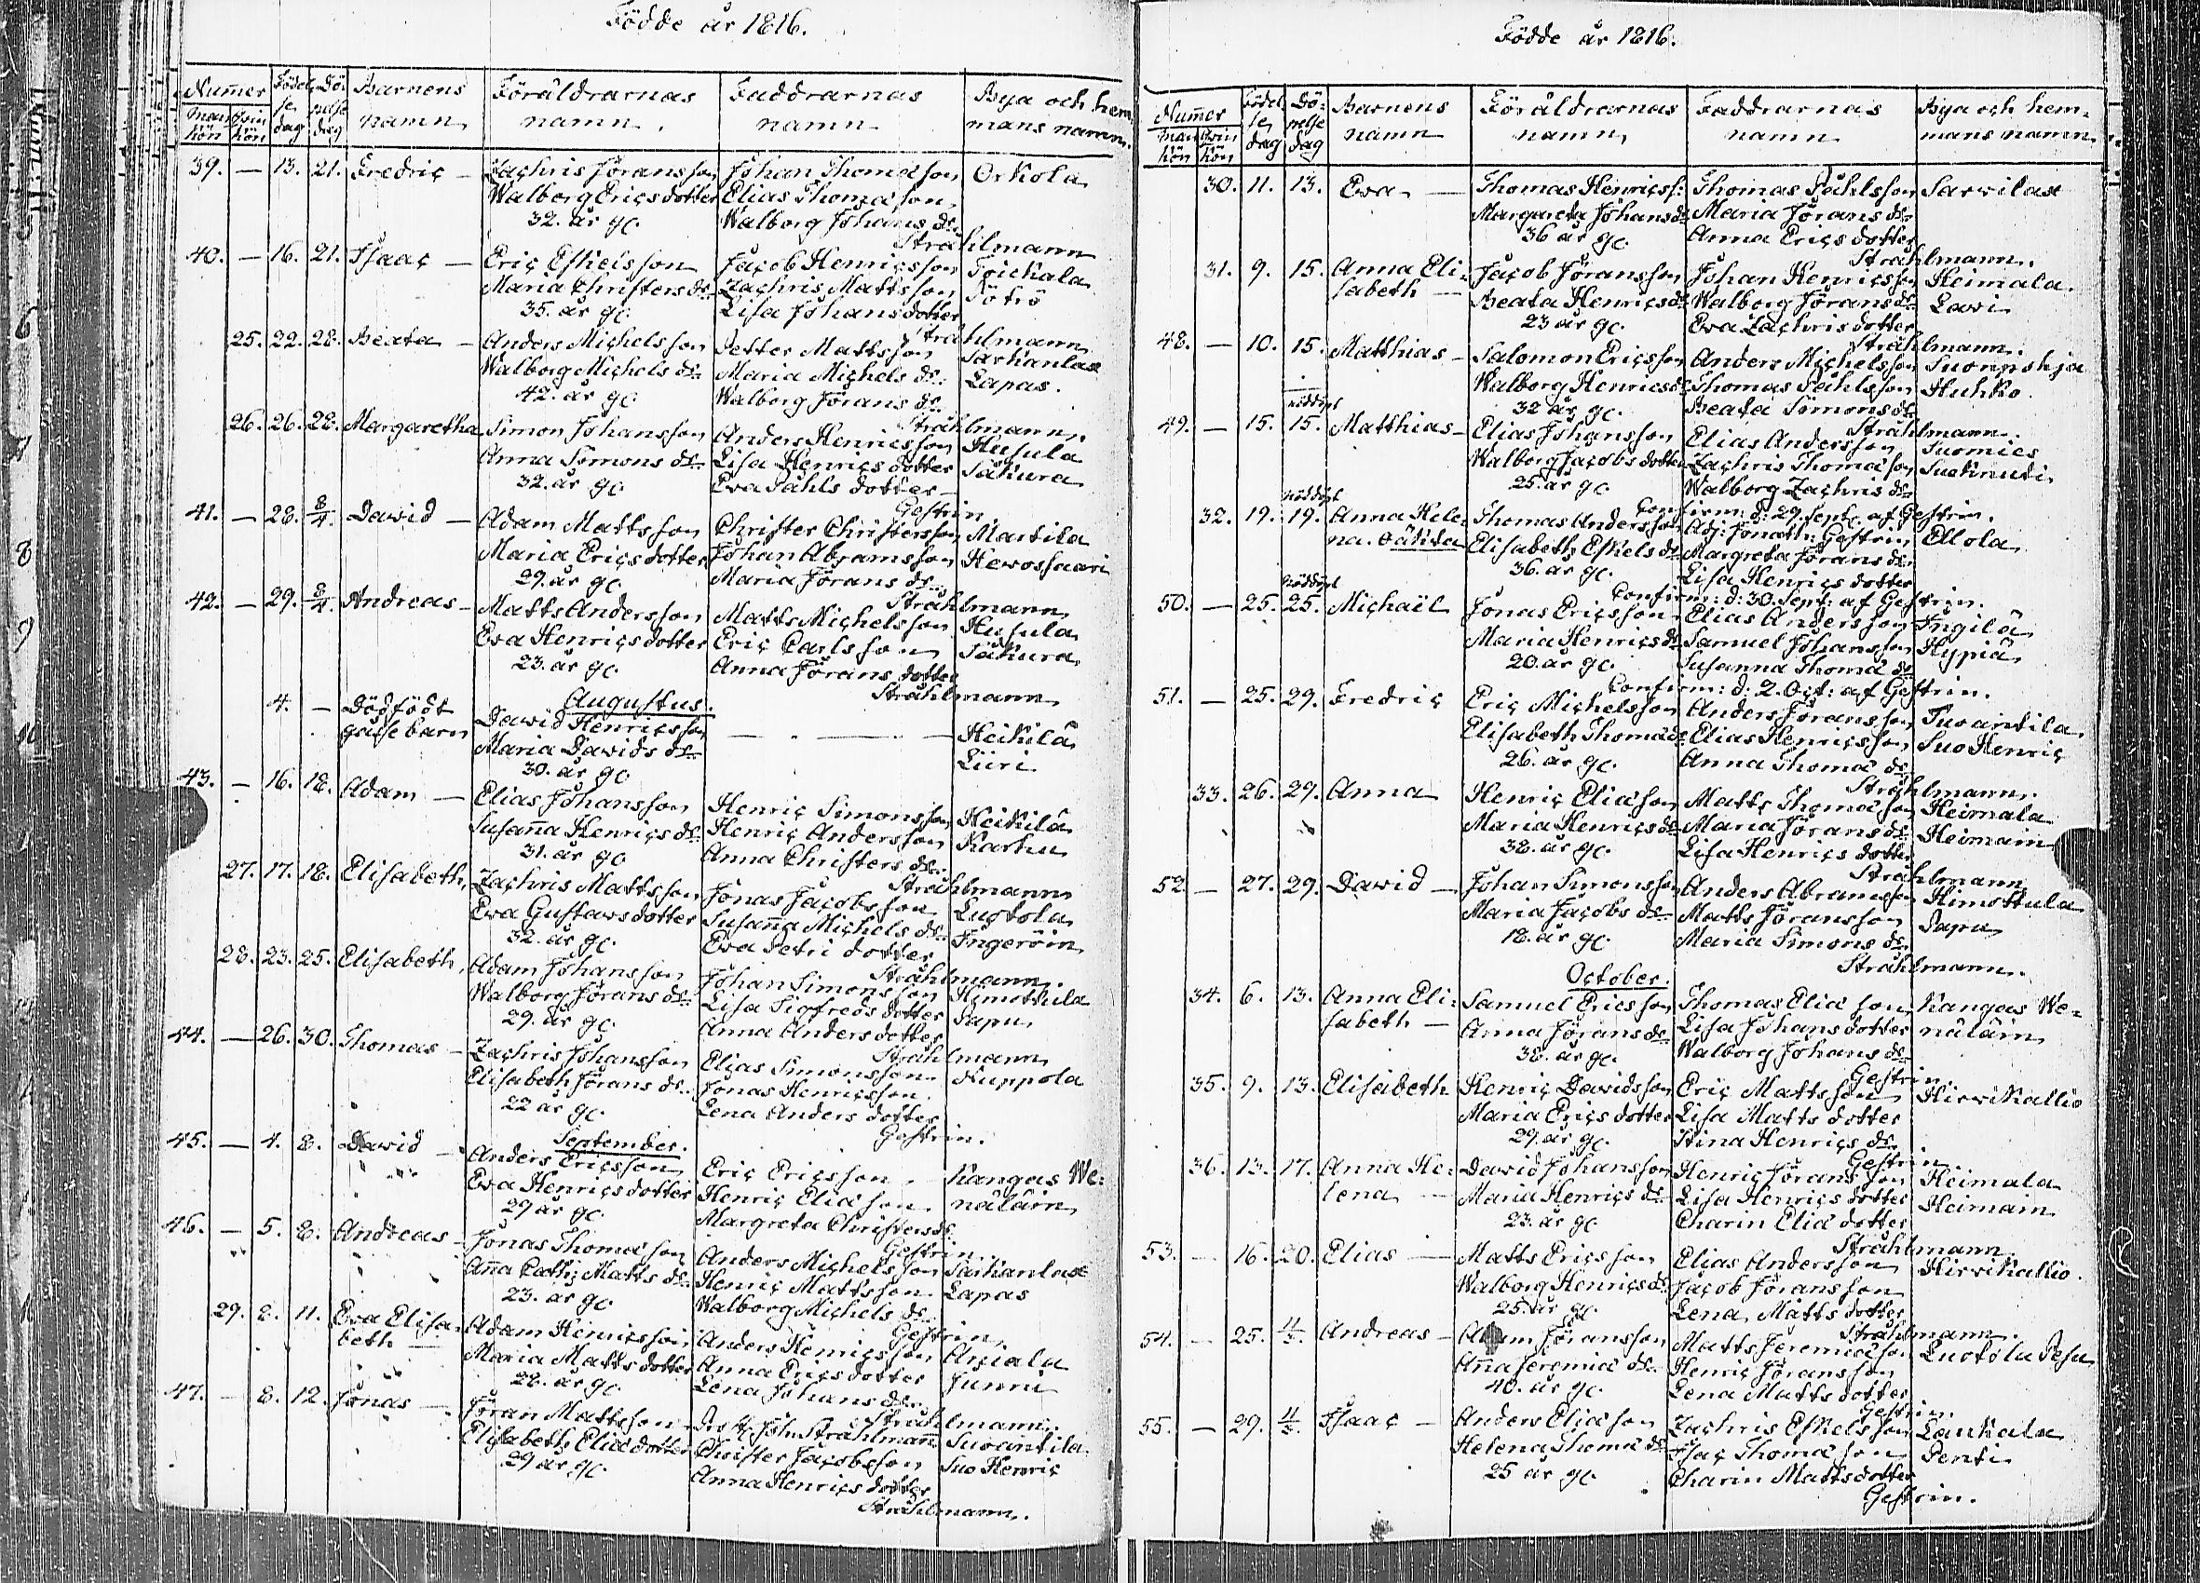 Födde år 1816.
Num̄er
man kön
qvin kön
Födelse dag
Döpelse dag
Barnens namn
Föräldrarnas namn
Faddrarnas namn
Bya och hemmans namn
39. — 13. 21. Fredric — Zachris Göransson Johan Thomasson Orkola
Walborg Ericsdotter Elias Thomasson
32. år gl. Walborg Johans dr.
Stråhlmann
40. — 16. 21. Isaac — Eric Eskelsson Jacob Henricsson Toickala
Maria Christers dr. Zachris Mattsson Sötrö
35. år gl. Lisa Johansdotter
Stråhlmann
25. 22. 28. Beata — Anders Michelsson Petter Mattsson Sarkanlax
Walborg Michels dr. Maria Michels dr. Lapas.
42. år gl. Walborg Jörans dr.
Stråhlmann
26. 26. 28. Margaretha Simon Johansson Anders Henricsson Husula
Anna Simons dr. Lisa Henrics dotter Säkura
32. år gl. Eva Påhls dotter
Gestrin
41. — 28. 8/4. David — Adam Mattsson Christer Christersson Martila
Maria Ericsdotter Johan Abramsson Hevossaari
29. år gl. Maria Jörans dr.
Stråhlmann
42. — 29. 8/4. Andreas — Matts Andersson Matts Michelsson Husula
Eva Henricsdotter Eric Carlsson Säkura
23. år gl. Anna Jörans dotter
Stråhlmann
Augustus.
4. — Dödfödt David Henricsson — Heikilä
gossebarn Maria Davids dr. Liiri
30. år gl.
43. — 16. 18. Adam — Elias Johansson Henric Simonsson Heikilä
Susan̄a Henrics dr. Henric Andersson Karhu
31. år gl. Anna Christers dr.
Stråhlmann
27. 17. 18. Elisabeth Zachris Mattsson Jonas Jacobsson Luotola
Eva Gustavsdotter Susan̄a Michels dr. Ingeröin
32. år gl. Eva Petri dotter
Stråhlmann.
28. 23. 25. Elisabeth Adam Johansson Johan Simonsson Himottula
Walborg Jörans dr. Lisa Sigfreds dotter Sapu
29. år gl. Anna Anders dotter
Stråhlmann
44. — 26. 30. Thomas — Zachris Johansson Elias Simonsson Kuppola
Elisabeth Jörans dr. Jonas Henricsson
22 år gl. Lena Anders dotter
Gestrin.
September.
45. — 4. 8. David — Anders Ericsson Eric Ericsson Kangas We-
Eva Henricsdotter Henric Eliasson näläin
29 år gl. Margreta Christers dr.
Gestrin.
46. — 5. 8. Andreas — Jonas Thomasson Anders Michelsson Sarkanlax
An̄a Cath: Matts dr. Henric Mattsson Lapas
23. år gl. Walborg Michels dr.
Gestrin
29. 8. 11. Eva Elisa- Adam Henricsson Anders Henricsson Anjala
beth — Maria Mattsdotter Anna Ericsdotter Junni
28. år gl. Lena Johans dr.
Stråhlmann
47. — 8. 12. Jonas — Jöran Mattsson Joh. Stråhlman̄ Suoantila
Elisabeth Eliædotter Christer Jacobsson Suo Henric
29 år gl. Anna Henrics dotter
Stråhlmann.
Födde år 1816.
Num̄er
man kön
qvin kön
Födelse dag
Döpelse dag
Barnens namn
Föräldrarnas namn
Faddrarnas namn
Bya och hemmans namn
30. 11. 13. Eva — Thomas Henricss: Thomas Påhlsson Sarvilax
Margareta Johans dr. Maria Jörans dr.
36 år gl. Anna Erics dotter
Stråhlmann.
31. 9. 15. Anna Eli- Jacob Jöransson Johan Henricsson Heimala
sabeth — Beata Henrics dr. Walborg Jörans dr. Lavi
23 år gl. Eva Zachris dotter
Stråhlmann.
48. — 10. 15. Matthias — Salomon Ericsson Anders Michelsson
Walborg Henrics dr. Thomas Påhlsson Huhko
32 år gl. Beata Simons dr.
Stråhlmann.
nöddöpt
49. — 15. 15. Matthias — Elias Johansson Elias Andersson Suomies
Walborg Jacobs dotter Zachris Thomasson Suoknuti
25. år gl. Walborg Zachris dr.
Confirm: d: 29. Sept: af Gestrin.
nöddöpt
32. 19. 19. Anna Hele- Thomas Andersson Adj: Jonath: Gestrin Ellola
na. Oäkta Elisabeth Eskels dr. Margreta Jörans dr.
36. år gl. Lisa Henrics dotter
Confirm: d: 30. Sept: af Gestrin.
nöddöpt
50. — 25. 25. Michaël Jonas Ericsson Elias Andersson Ingilä
Maria Henrics dr. Samuel Johansson Hypiä
20. år gl. Susanna Thomæ dr.
Confirm: d: 2. Oct: af Gestrin.
51. — 25. 29. Fredric Eric Michelsson Anders Jöransson Suoantila
Elisabeth Thomæ dr. Elias Henricsson Suo Henric
26. år gl. Anna Thomæ dr.
Stråhlmann.
33. 26. 29. Anna Henric Eliasson Matts Thomasson Heimala
Maria Henrics dr. Maria Jörans dr. Heimain
38. år gl. Lisa Henrics dotter
Stråhlmann
52. — 27. 29. David — Johan Simonsson Anders Abramsson Himottula
Maria Jacobs dr. Matts Jöransson Sapu
18. år gl. Maria Simons dr.
Stråhlmann.
October.
34. 6. 13. Anna Eli- Samuel Ericsson Thomas Eliasson Kangas We-
sabeth — Anna Jörans dr. Lisa Johansdotter näläin
38. år gl. Walborg Johans dr.
Gestrin.
35. 9. 13. Elisabeth Henric Davidsson Eric Mattsson Hirvikallio
Maria Ericsdotter Lisa Matts dotter
29. år gl. Stina Henrics dr.
Gestrin.
36. 13. 17. Anna He- David Johansson Henric Jöransson Heimala
lena — Maria Henrics dr. Lisa Henrics dotter Heimain
23. år gl. Charin Eliæ dotter
Stråhlmann
53. — 16. 20. Elias — Matts Ericsson Elias Andersson Hirvikallio.
Walborg Henrics dr. Jacob Jöransson
25. år gl. Lena Matts dotter
Stråhlmann.
54. — 25. Andreas — Adam Jöransson Matts Jeremiasson Luotola
An̄a Jeremiæ dr. Henric Jöransson
40. år gl. Lena Matts dotter
Gestrin
55. — 29. Isaac — Anders Eliasson Zachris Eskelsson Laukala
Helena Thomæ dr. Isac Thomasson Penti
25 år gl. Charin Mattsdotter
Gestrin.